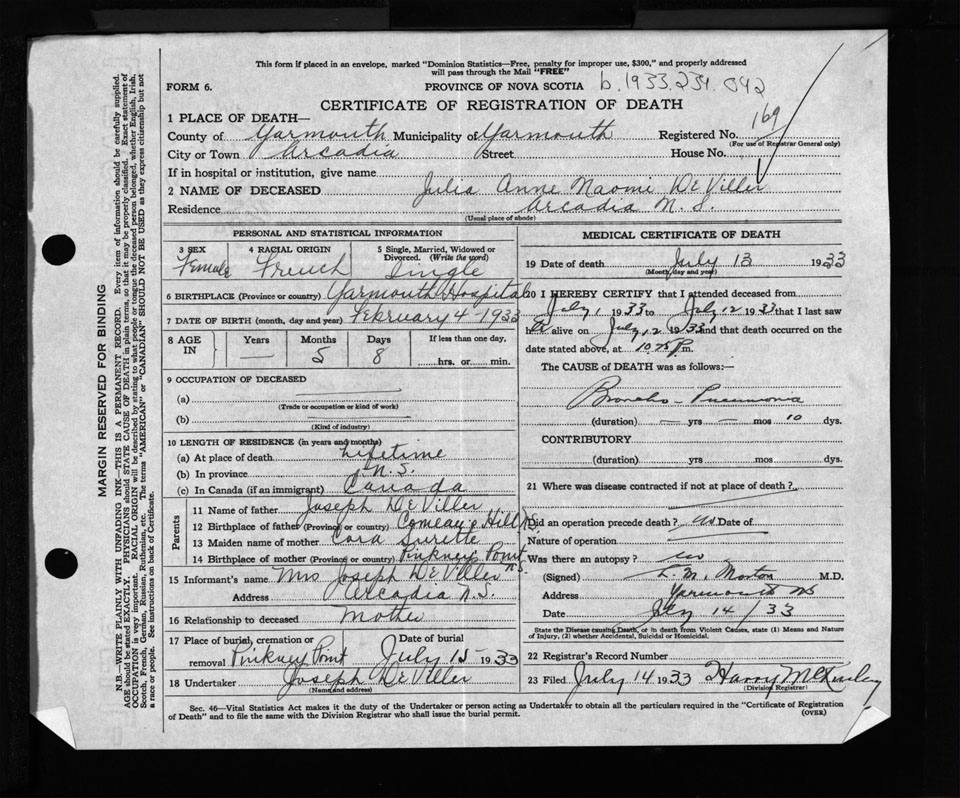 This form if placed in an envelope, marked "Dominion Statistics—Free, penalty for improper use, $300," and properly addressed
will pass through the Mail "FREE"
FORM 6.
PROVINCE OF NOVA SCOTIA b.1933.234.042
CERTIFICATE OF REGISTRATION OF DEATH
1 PLACE OF DEATH—
County of Yarmouth Municipality of Yarmouth Registered No. 169
(For use of Registrar General only)
City or Town Arcadia Street House No.
If in hospital or institution, give name
2 NAME OF DECEASED Julia Anne Naomi DeViller
Residence Arcadia N. S.
(Usual place of abode)
PERSONAL AND STATISTICAL INFORMATION
3 SEX Female
4 RACIAL ORIGIN French
5 Single, Married, Widowed or Divorced. (Write the word) Single
6 BIRTHPLACE (Province or country) Yarmouth Hospital
7 DATE OF BIRTH (month, day and year) February 4 - 1933
8 AGE IN Years — Months 5 Days 8 If less than one day, hrs. or min.
9 OCCUPATION OF DECEASED
(a)
(Trade or occupation or kind of work)
(b)
(Kind of industry)
10 LENGTH OF RESIDENCE (in years and months)
(a) At place of death Lifetime
(b) In province N.S.
(c) In Canada (if an immigrant) Canada
Parents
11 Name of father Joseph DeViller
12 Birthplace of father (Province or country) Comeau's Hill N.S.
13 Maiden name of mother Cora Surette
14 Birthplace of mother (Province or country) Pinkney Point N.S.
15 Informant's name Mrs Joseph DeViller
Address Arcadia N.S.
16 Relationship to deceased Mother
17 Place of burial, cremation or removal Pinkney Point Date of burial July 15 - 1933
18 Undertaker Joseph DeViller
(Name and address)
MEDICAL CERTIFICATE OF DEATH
19 Date of death July 13 1933
(Month, day and year)
20 I HEREBY CERTIFY that I attended deceased from
July 1 1933 to July 12 1933 that I last saw
h er alive on July 12 1933 and that death occurred on
date stated above, at m.
The CAUSE OF DEATH was as follows:—
Broncho-Pneumonia
(duration) — yrs — mos 10 dys.
CONTRIBUTORY
(duration) yrs. mos. dys.
21 Where was disease contracted if not at place of death?
Did an operation precede death? no Date of
Nature of operation
Was there an autopsy? no
(Signed) L. M. Morton M.D.
Address Yarmouth NS
Date July 14/33
State the Disease causing Death, or in death from Violent Causes, state (1) Means and Nature of Injury, (2) whether Accidental, Suicidal or Homicidal.
22 Registrar's Record Number
23 Filed July 14 1933 Harry McKinley
(Division Registrar)
Sec. 46—Vital Statistics Act makes it the duty of the Undertaker or person acting as Undertaker to obtain all the particulars required in the "Certificate of Registration
of Death" and to file the same with the Division Registrar who shall issue the burial permit.
(OVER)
MARGIN RESERVED FOR BINDING
N.B.—WRITE PLAINLY WITH UNFADING INK—THIS IS A PERMANENT RECORD. Every item of information should be carefully supplied.
AGE should be stated EXACTLY. PHYSICIANS should STATE CAUSE OF DEATH in plain terms, so that it may be properly classified. Exact statement of
OCCUPATION is very important. RACIAL ORIGIN will be described by stating to what people or tongue the deceased person belonged, whether English, Irish,
Scotch, French, German, Russian, Ruthenian, etc. The terms "AMERICAN" or "CANADIAN" SHOULD NOT BE USED as they express citizenship but not
a race or people. See instructions on back of Certificate.